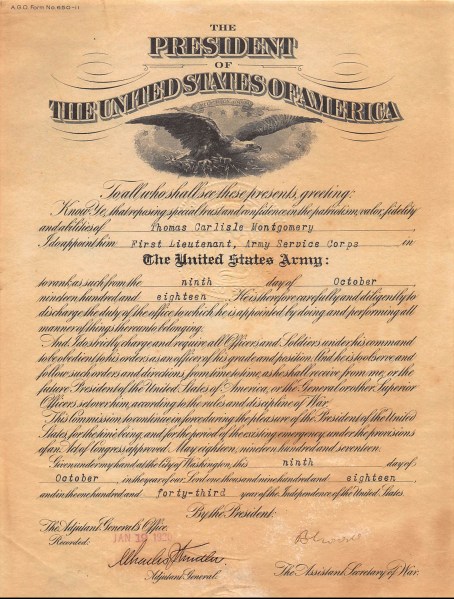 A.G.O. Form No. 650-11
THE
PRESIDENT
OF
THE UNITED STATES OF AMERICA
To all who shall see these presents, greeting:
Know Ye, that reposing special trust and confidence in the patriotism, valor, fidelity
and abilities of Thomas Carlisle Montgomery
I do appoint him First Lieutenant, Army Service Corps in
The United States Army:
to rank as such from the ninth day of October
nineteen hundred and eighteen. He is therefore carefully and diligently to
discharge the duty of the office to which he is appointed by doing and performing all
manner of things thereunto belonging.
And I do strictly charge and require all Officers and Soldiers under his command
to be obedient to his orders as an officer of his grade and position. And he is to observe and
follow such orders and directions, from time to time, as he shall receive from me, or the
future President of the United States of America, or the General or other Superior
Officers set over him, according to the rules and discipline of War.
This Commission to continue in force during the pleasure of the President of the United
States, for the time being, and for the period of the existing emergency, under the provisions
of an Act of Congress approved May eighteen, nineteen hundred and seventeen.
Given under my hand at the City of Washington, this ninth day of
October, in the year of our Lord one thousand nine hundred and eighteen,
and in the one hundred and forty-third year of the Independence of the United States.
By the President:
The Adjutant General's Office
Recorded: JAN 10
Adjutant General.
The Assistant Secretary of War.